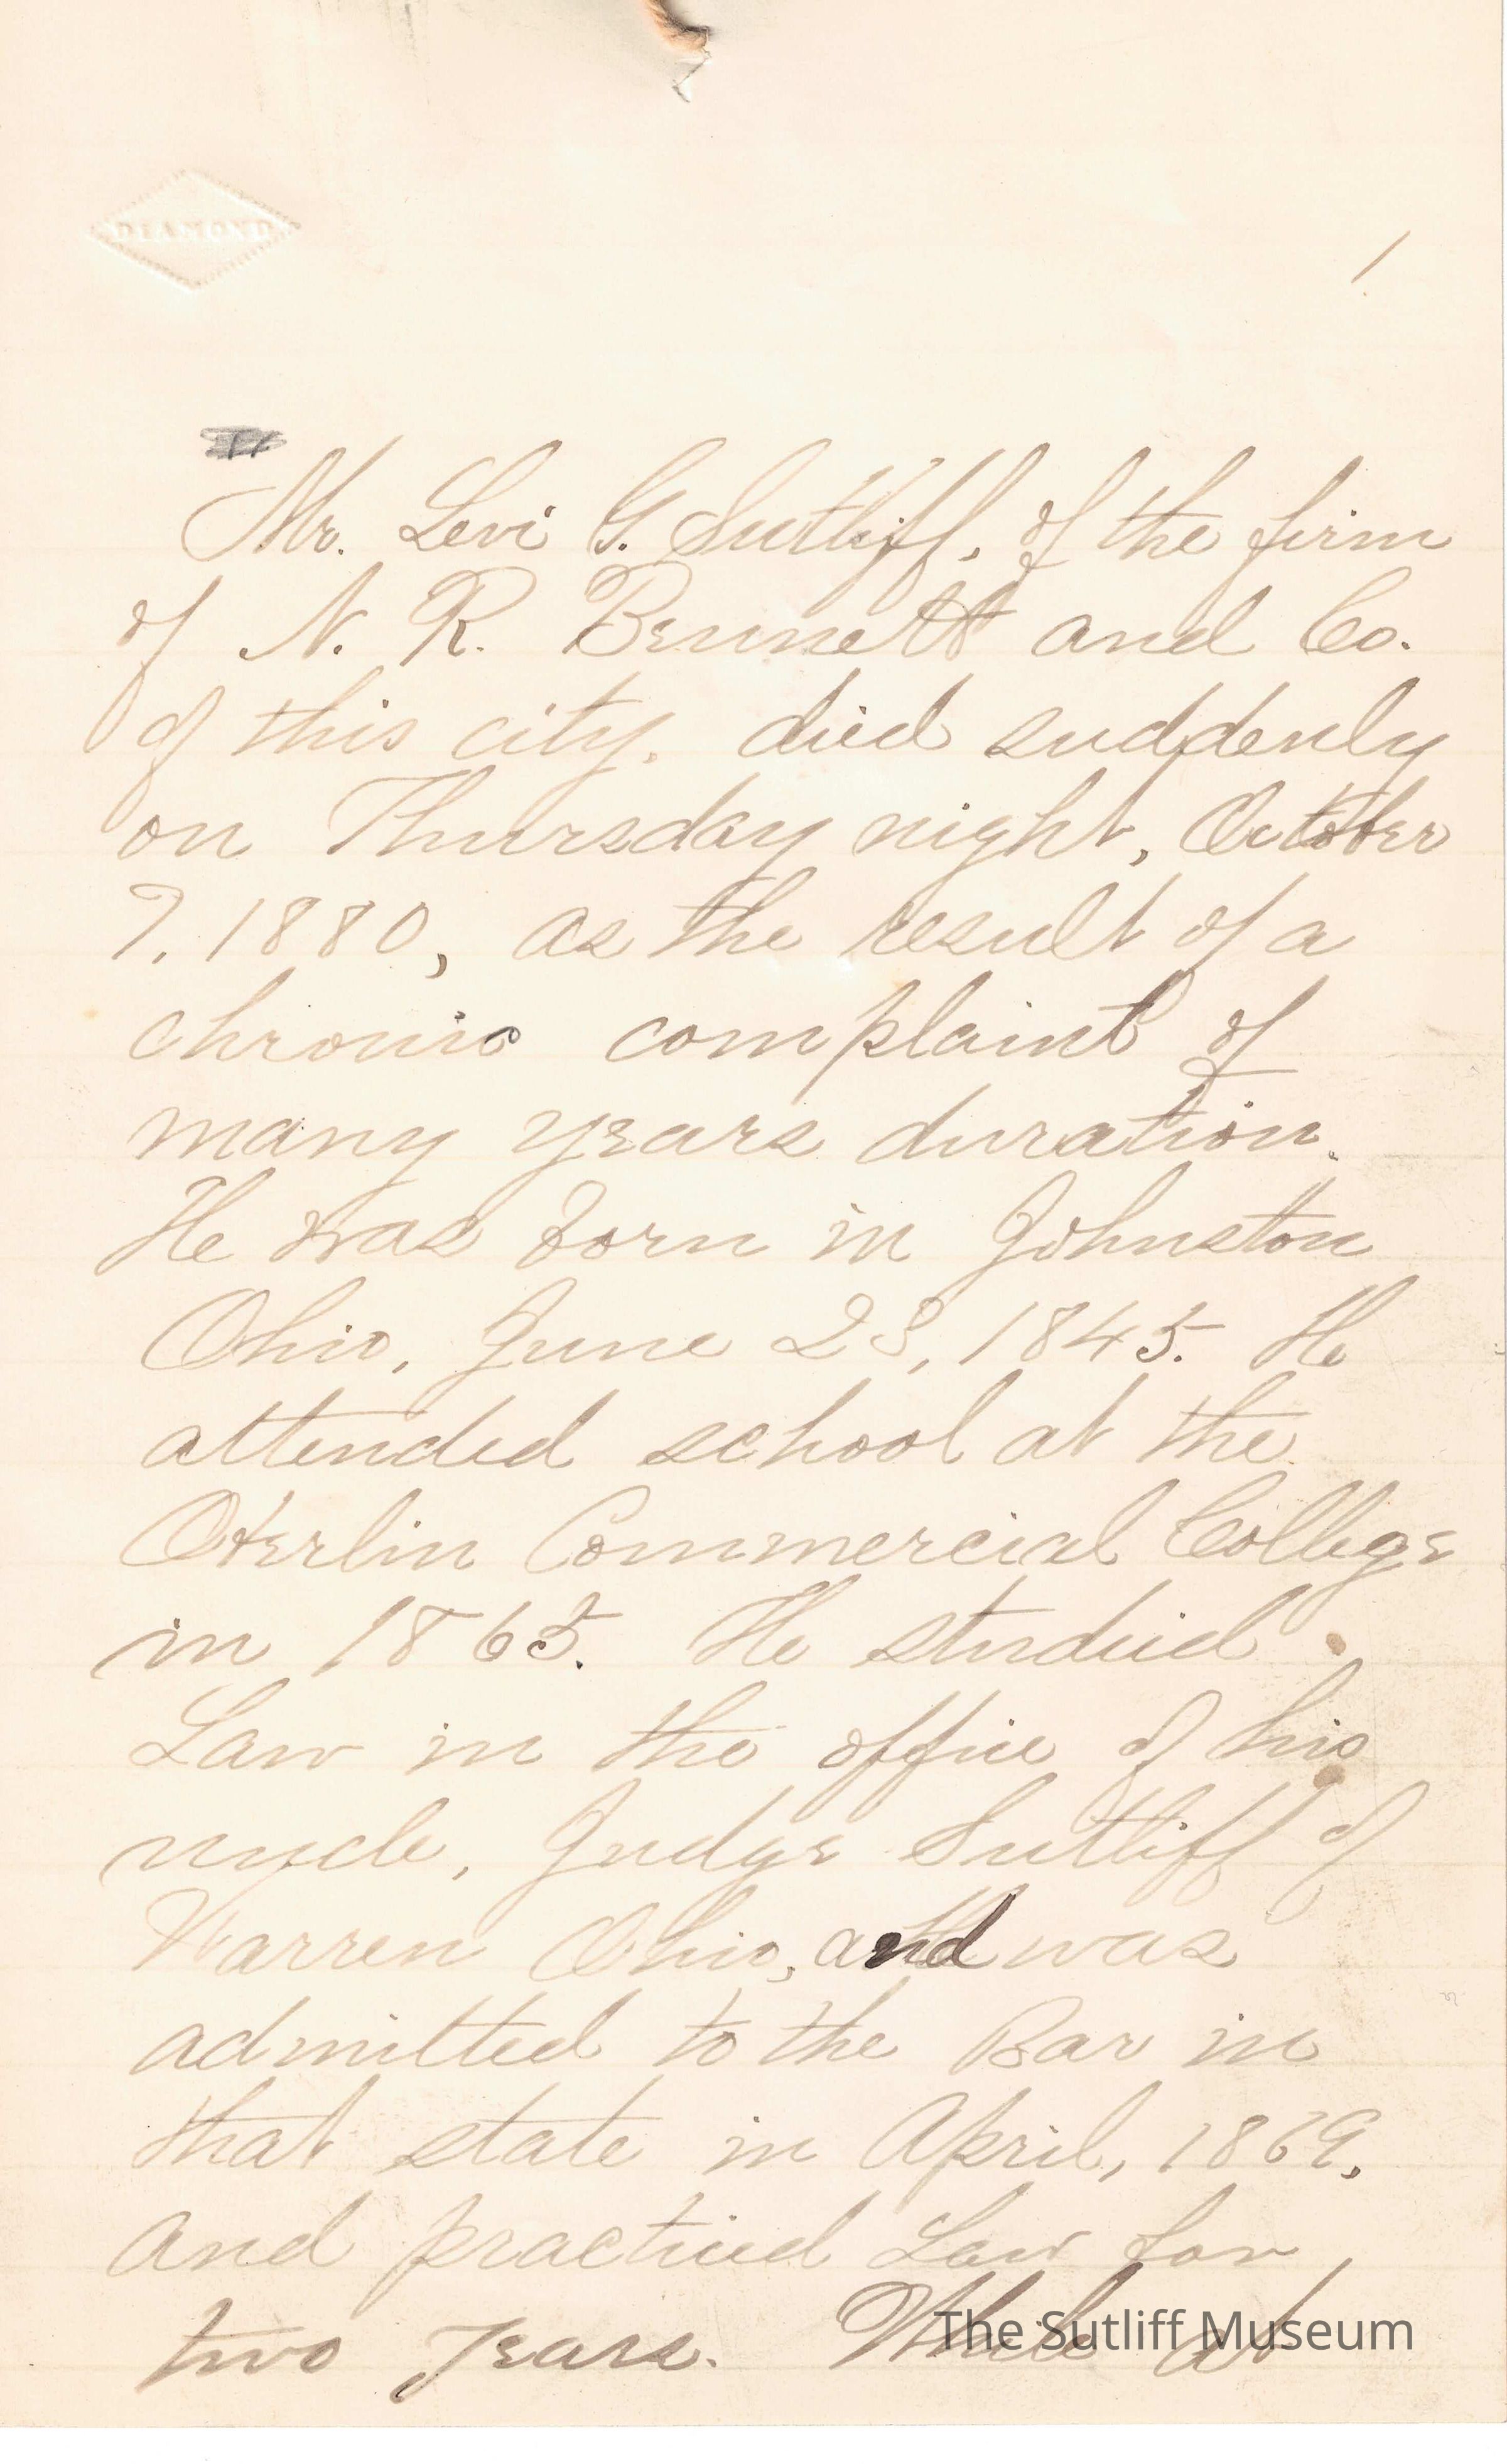 DIAMOND
1
Mr. Levi G. Sutliff, of the firm
of N. R. Bennett and Co.
of this city, died suddenly
on Thursday night, October
7, 1880, as the result of a
chronic complaint of
many years duration.
He was born in Johnston
Ohio, June 23, 1845. He
attended school at the
Oberlin Commercial College
in 1865. He studied
Law in the office of his
uncle, Judge Sutliff of
Warren Ohio, and was
admitted to the Bar in
that state in April, 1869,
and practiced Law for
two years. While at
The Sutliff Museum